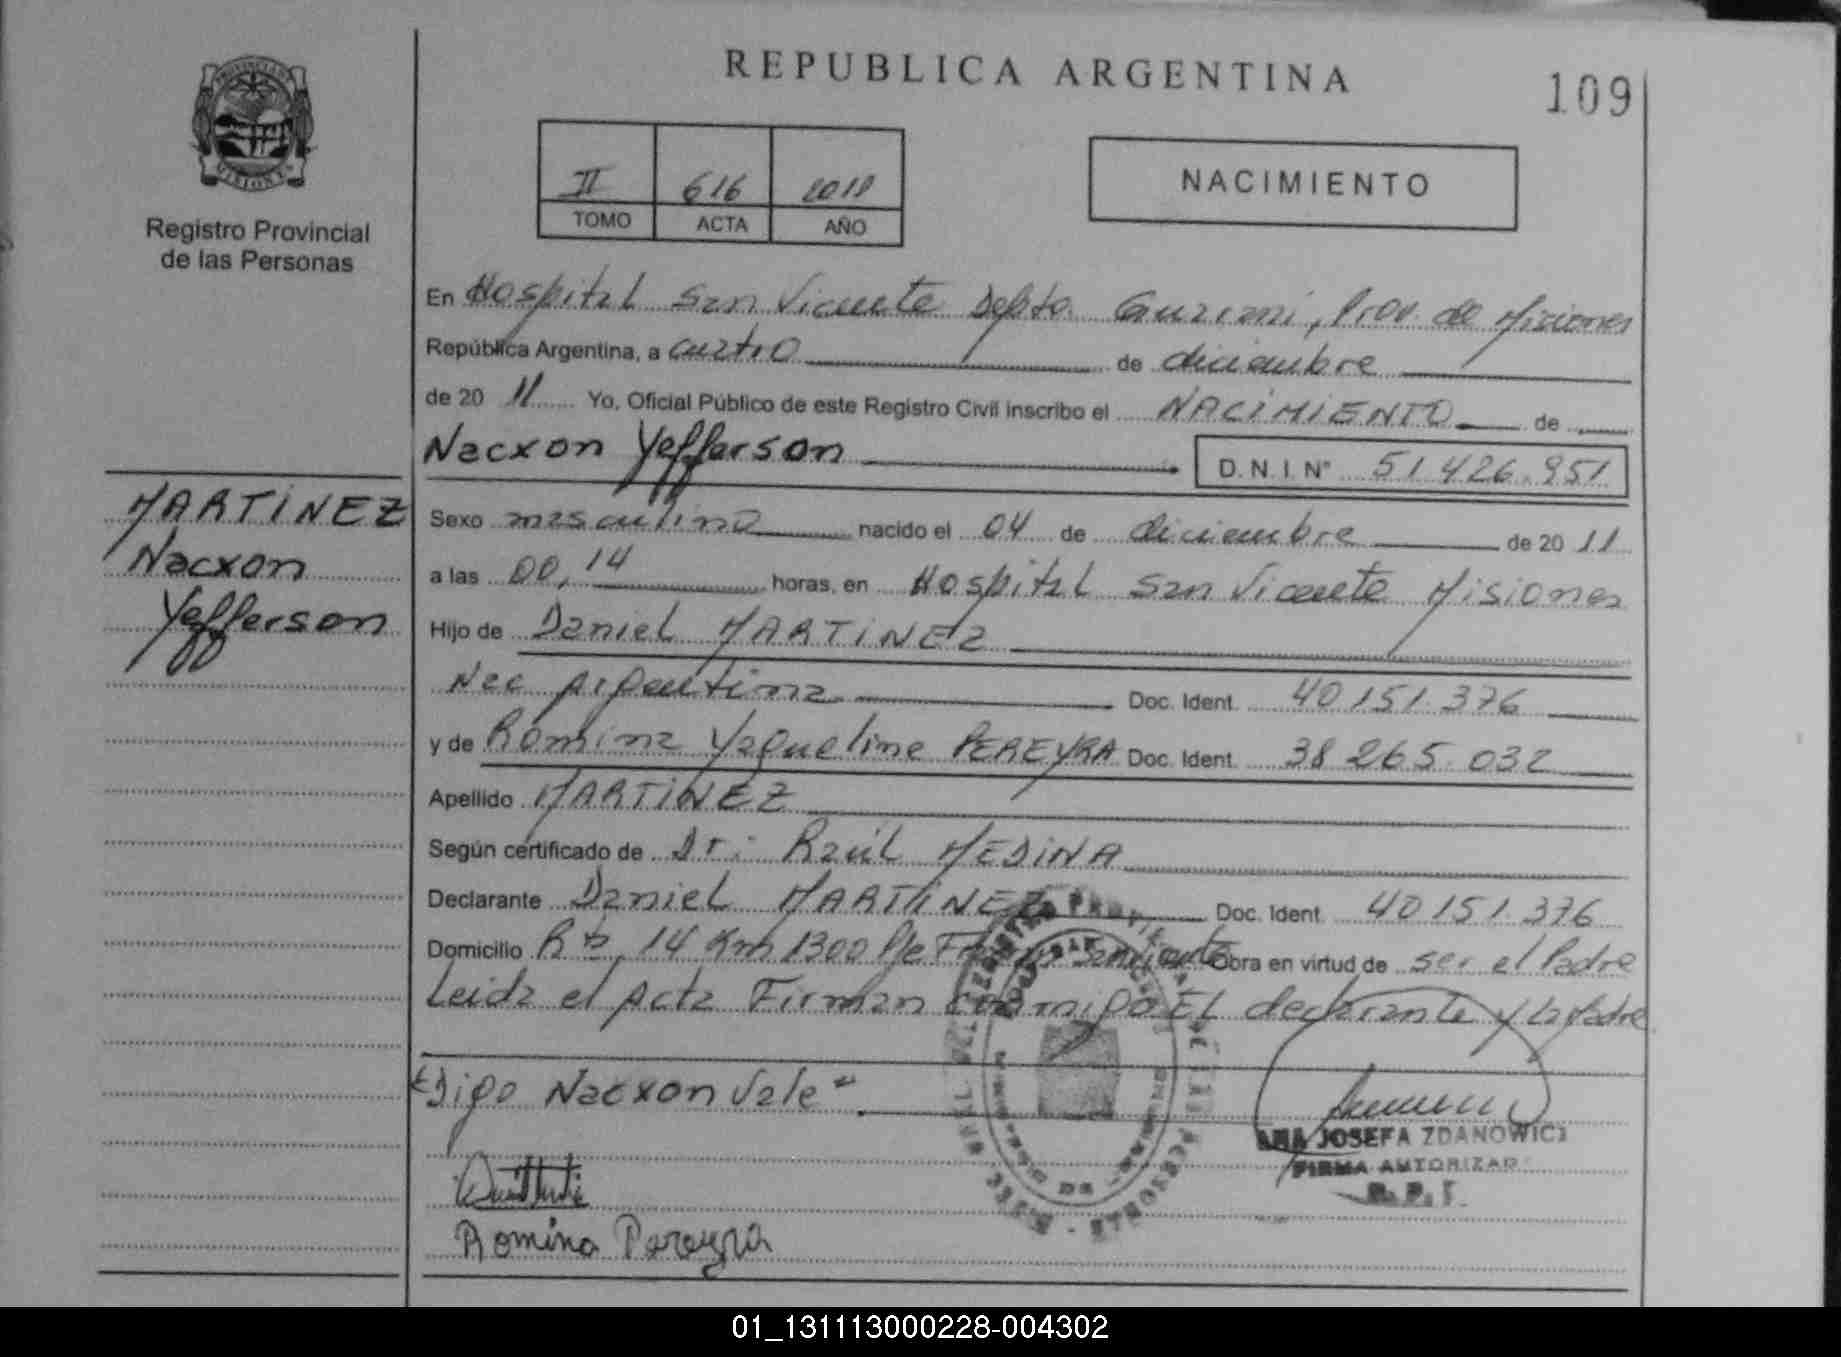 REPUBLICA ARGENTINA
109
II 616 2011
TOMO ACTA AÑO
NACIMIENTO
Registro Provincial
de las Personas
En Hospital San Vicente Depto. Guarani, Prov. de Misiones
República Argentina, a cuatro de diciembre
de 20 11 Yo, Oficial Público de este Registro Civil inscribo el NACIMIENTO de
Nacxon Yefferson D.N.I. N° 51.426.951
MARTINEZ
Nacxon
Yefferson
Sexo masculino nacido el 04 de diciembre de 20 11
a las 00,14 horas, en Hospital San Vicente Misiones
Hijo de Daniel MARTINEZ
Nac argentina Doc. Ident. 40.151.376
y de Romina Yaqueline PEREYRA Doc. Ident. 38.265.032
Apellido MARTINEZ
Según certificado de Dr: Raúl MEDINA
Declarante Daniel MARTINEZ Doc. Ident. 40.151.376
Domicilio Rta 14 Km 1300 Pje San Vicente Obra en virtud de ser el Padre
Leida el Acta Firman conmigo El declarante y la Madre
"Digo Nacxon Vale"
ANA JOSEFA ZDANOWICZ
FIRMA AUTORIZAD
Romina Pereyra
01_131113000228-004302